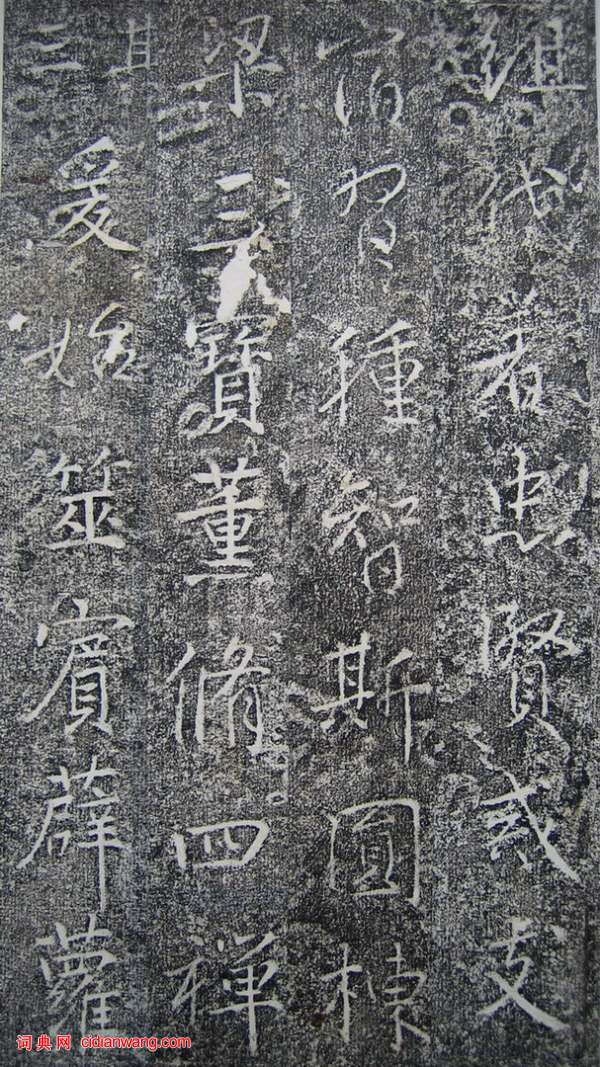 組代著忠賢貳支
宿習種智斯圓棟
梁三寶董脩四禪
其三爰始筮賓薜蘿
词典网 cidianwang.com